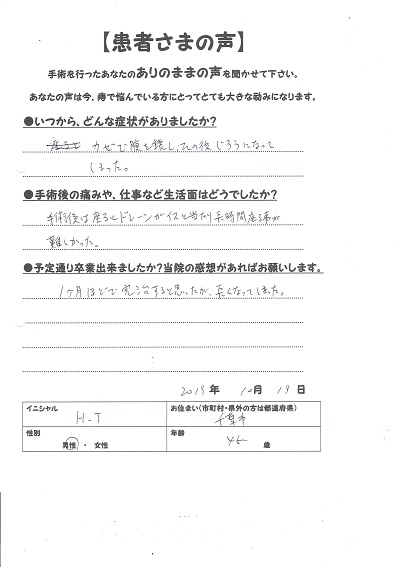 【患者さまの声】
手術を行ったあなたのありのままの声を聞かせて下さい。
あなたの声は今、痔で悩んでいる方にとってとても大きな励みになります。
●いつから、どんな症状がありましたか?
カゼで腹を壊し、その後じろうになって
しまった。
●手術後の痛みや、仕事など生活面はどうでしたか?
手術後は座るとドレーンがイスと当たり長時間座る事が
難しかった。
●予定通り卒業出来ましたか?当院の感想があればお願いします。
1ヶ月ほどで完治すると思ったが、長くなってしまった。
2019年 10月 19日
イニシャル お住まい(市町村・県外の方は都道府県)
H.T 千葉市
性別 年齢
男性 ・ 女性 45 歳